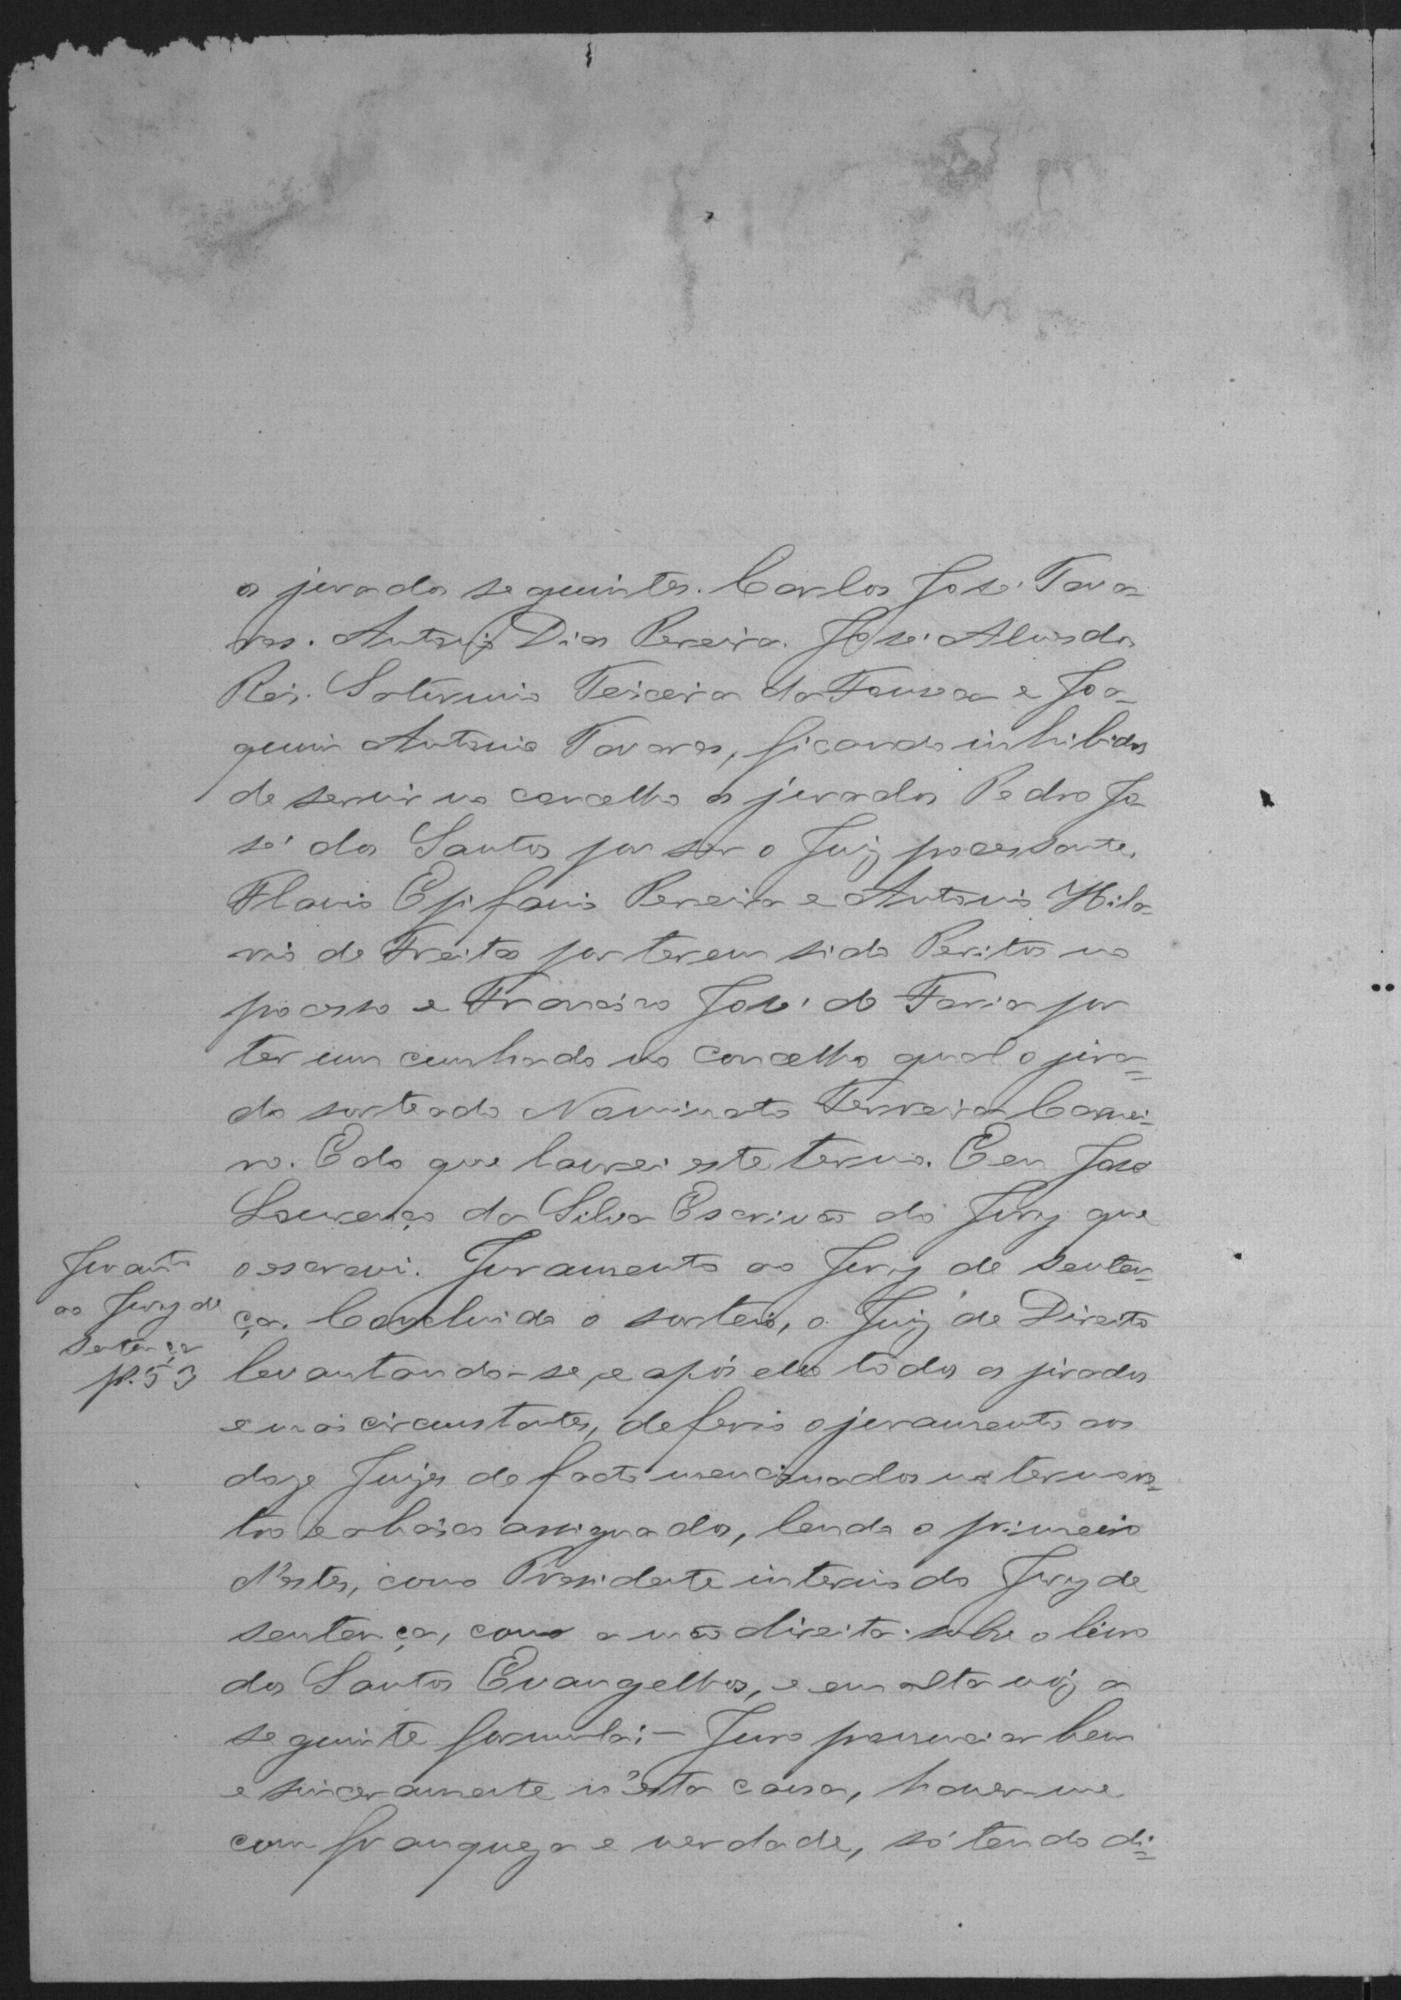 os jurados seguintes. Carlos José Tava-
res. Antonio Dias Pereira. José Alves dos
Reis. Saturnino Teixeira da Fonseca e Joa-
quim Antonio Tavares, ficando inhibidos
de servir no concelho os jurados Pedro Jo-
sé dos Santos por ser o Juiz processante,
Flavio Epifanio Pereira e Antonio Hila-
rio de Freitas por terem sido Peritos no
processo e Francisco José de Faria por
ter um cunhado no concelho qual o jura-
do sorteado Nominato Ferreira Carnei-
ro. E do que lavrei este termo. E eu José
Lourenço da Silva Escrivão do Jury que
o escrevi. Juramento ao Jury de senten-
ça. Concluido o sorteio, o Juiz de Direito
levantando-se, e após elle todos os jurados
e mais circunstantes, deferio o juramento aos
doze Juizes de facto mencionados no termo re-
tro e abaixo assignados, lendo o primeiro
d'estes, como Presidente interino do Jury de
sentença, com a mão direita sobre o livro
dos Santos Evangelhos, e em alta vóz a
seguinte formula: — Juro pronunciar bem
e sinceramente n'esta causa, haver-me
com franqueza e verdade, só tendo di-
Juramto
ao Jury de
sentença
p. 53